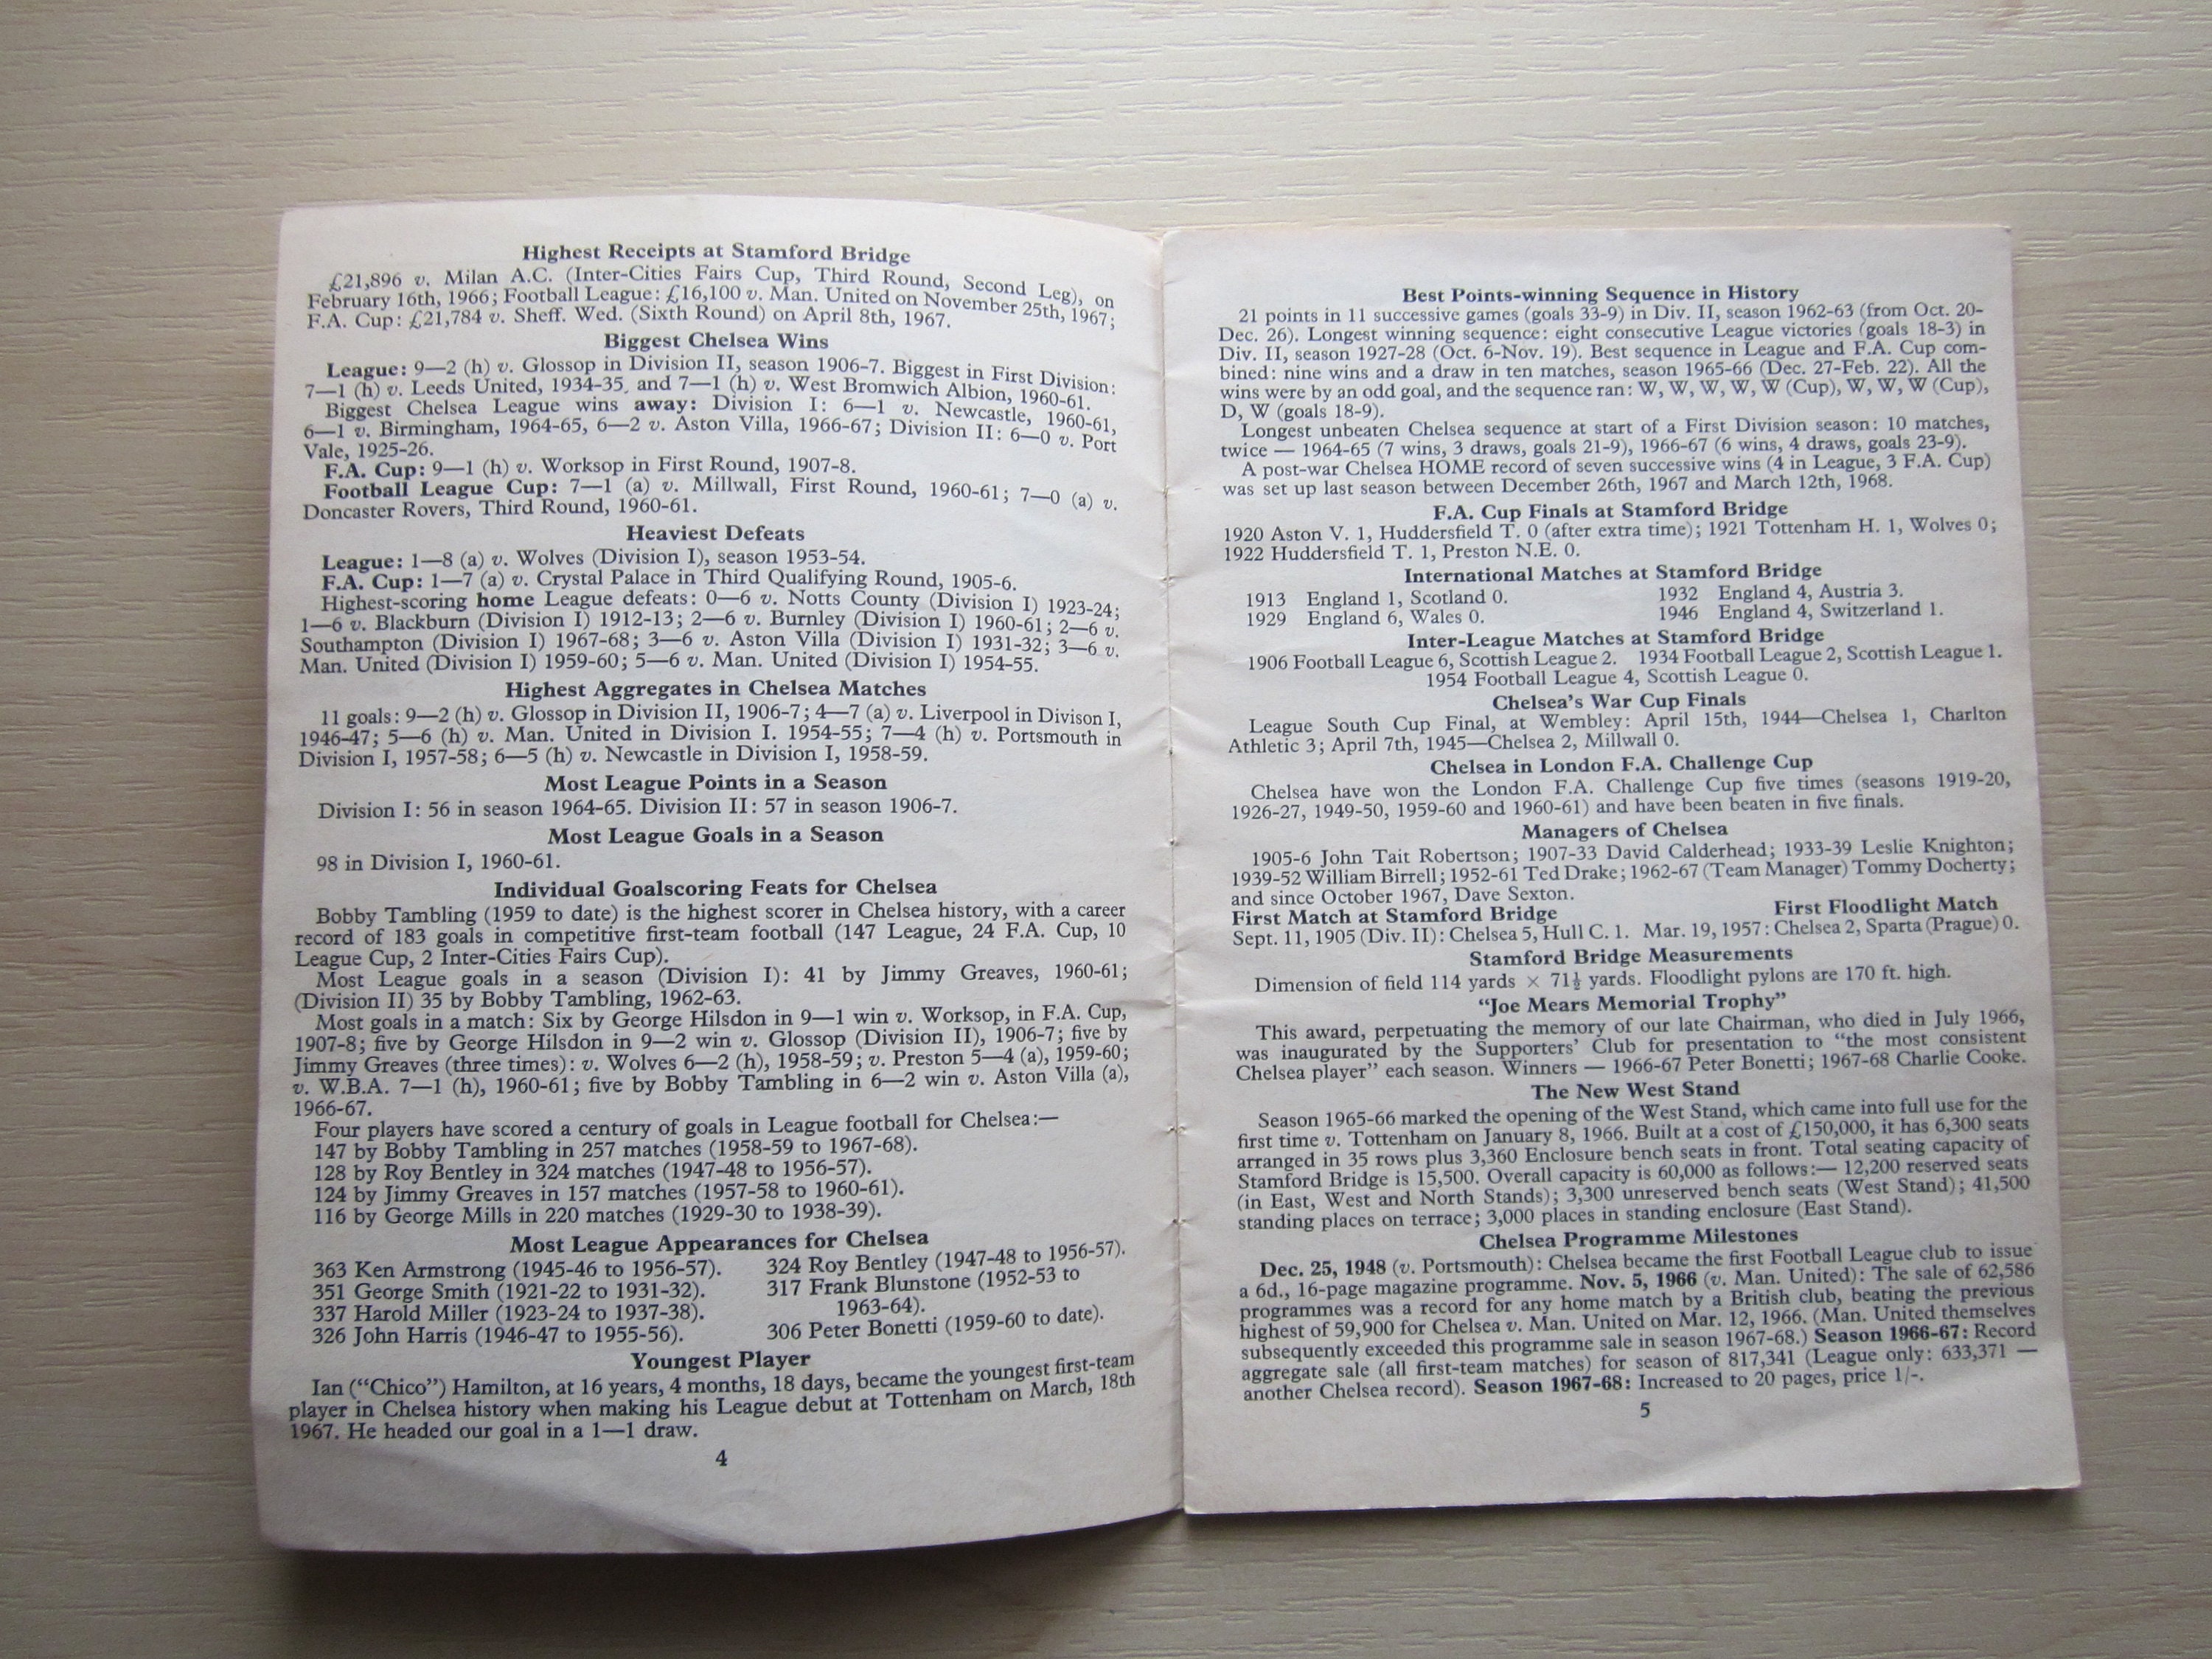 Highest Receipts at Stamford Bridge
£21,896 v. Milan A.C. (Inter-Cities Fairs Cup, Third Round, Second Leg), on
February 16th, 1966; Football League: £16,100 v. Man. United on November 25th, 1967;
F.A. Cup: £21,784 v. Sheff. Wed. (Sixth Round) on April 8th, 1967.
Biggest Chelsea Wins
League: 9—2 (h) v. Glossop in Division II, season 1906-7. Biggest in First Division:
7—1 (h) v. Leeds United, 1934-35, and 7—1 (h) v. West Bromwich Albion, 1960-61.
Biggest Chelsea League wins away: Division I: 6—1 v. Newcastle, 1960-61,
6—1 v. Birmingham, 1964-65, 6—2 v. Aston Villa, 1966-67; Division II: 6—0 v. Port
Vale, 1925-26.
F.A. Cup: 9—1 (h) v. Worksop in First Round, 1907-8.
Football League Cup: 7—1 (a) v. Millwall, First Round, 1960-61; 7—0 (a) v.
Doncaster Rovers, Third Round, 1960-61.
Heaviest Defeats
League: 1—8 (a) v. Wolves (Division I), season 1953-54.
F.A. Cup: 1—7 (a) v. Crystal Palace in Third Qualifying Round, 1905-6.
Highest-scoring home League defeats: 0—6 v. Notts County (Division I) 1923-24;
1—6 v. Blackburn (Division I) 1912-13; 2—6 v. Burnley (Division I) 1960-61; 2—6 v.
Southampton (Division I) 1967-68; 3—6 v. Aston Villa (Division I) 1931-32; 3—6 v.
Man. United (Division I) 1959-60; 5—6 v. Man. United (Division I) 1954-55.
Highest Aggregates in Chelsea Matches
11 goals: 9—2 (h) v. Glossop in Division II, 1906-7; 4—7 (a) v. Liverpool in Divison I,
1946-47; 5—6 (h) v. Man. United in Division I. 1954-55; 7—4 (h) v. Portsmouth in
Division I, 1957-58; 6—5 (h) v. Newcastle in Division I, 1958-59.
Most League Points in a Season
Division I: 56 in season 1964-65. Division II: 57 in season 1906-7.
Most League Goals in a Season
98 in Division I, 1960-61.
Individual Goalscoring Feats for Chelsea
Bobby Tambling (1959 to date) is the highest scorer in Chelsea history, with a career
record of 183 goals in competitive first-team football (147 League, 24 F.A. Cup, 10
League Cup, 2 Inter-Cities Fairs Cup).
Most League goals in a season (Division I): 41 by Jimmy Greaves, 1960-61;
(Division II) 35 by Bobby Tambling, 1962-63.
Most goals in a match: Six by George Hilsdon in 9—1 win v. Worksop, in F.A. Cup,
1907-8; five by George Hilsdon in 9—2 win v. Glossop (Division II), 1906-7; five by
Jimmy Greaves (three times): v. Wolves 6—2 (h), 1958-59; v. Preston 5—4 (a), 1959-60;
v. W.B.A. 7—1 (h), 1960-61; five by Bobby Tambling in 6—2 win v. Aston Villa (a),
1966-67.
Four players have scored a century of goals in League football for Chelsea:—
147 by Bobby Tambling in 257 matches (1958-59 to 1967-68).
128 by Roy Bentley in 324 matches (1947-48 to 1956-57).
124 by Jimmy Greaves in 157 matches (1957-58 to 1960-61).
116 by George Mills in 220 matches (1929-30 to 1938-39).
Most League Appearances for Chelsea
363 Ken Armstrong (1945-46 to 1956-57).
351 George Smith (1921-22 to 1931-32).
337 Harold Miller (1923-24 to 1937-38).
326 John Harris (1946-47 to 1955-56).
324 Roy Bentley (1947-48 to 1956-57).
317 Frank Blunstone (1952-53 to
1963-64).
306 Peter Bonetti (1959-60 to date).
Youngest Player
Ian ("Chico") Hamilton, at 16 years, 4 months, 18 days, became the youngest first-team
player in Chelsea history when making his League debut at Tottenham on March, 18th
1967. He headed our goal in a 1—1 draw.
4
Best Points-winning Sequence in History
21 points in 11 successive games (goals 33-9) in Div. II, season 1962-63 (from Oct. 20-
Dec. 26). Longest winning sequence: eight consecutive League victories (goals 18-3) in
Div. II, season 1927-28 (Oct. 6-Nov. 19). Best sequence in League and F.A. Cup com-
bined: nine wins and a draw in ten matches, season 1965-66 (Dec. 27-Feb. 22). All the
wins were by an odd goal, and the sequence ran: W, W, W, W, W (Cup), W, W, W (Cup),
D, W (goals 18-9).
Longest unbeaten Chelsea sequence at start of a First Division season: 10 matches,
twice — 1964-65 (7 wins, 3 draws, goals 21-9), 1966-67 (6 wins, 4 draws, goals 23-9).
A post-war Chelsea HOME record of seven successive wins (4 in League, 3 F.A. Cup)
was set up last season between December 26th, 1967 and March 12th, 1968.
F.A. Cup Finals at Stamford Bridge
1920 Aston V. 1, Huddersfield T. 0 (after extra time); 1921 Tottenham H. 1, Wolves 0;
1922 Huddersfield T. 1, Preston N.E. 0.
International Matches at Stamford Bridge
1913 England 1, Scotland 0. 1932 England 4, Austria 3.
1929 England 6, Wales 0. 1946 England 4, Switzerland 1.
Inter-League Matches at Stamford Bridge
1906 Football League 6, Scottish League 2. 1934 Football League 2, Scottish League 1.
1954 Football League 4, Scottish League 0.
Chelsea's War Cup Finals
League South Cup Final, at Wembley: April 15th, 1944—Chelsea 1, Charlton
Athletic 3; April 7th, 1945—Chelsea 2, Millwall 0.
Chelsea in London F.A. Challenge Cup
Chelsea have won the London F.A. Challenge Cup five times (seasons 1919-20,
1926-27, 1949-50, 1959-60 and 1960-61) and have been beaten in five finals.
Managers of Chelsea
1905-6 John Tait Robertson; 1907-33 David Calderhead; 1933-39 Leslie Knighton;
1939-52 William Birrell; 1952-61 Ted Drake; 1962-67 (Team Manager) Tommy Docherty;
and since October 1967, Dave Sexton.
First Match at Stamford Bridge First Floodlight Match
Sept. 11, 1905 (Div. II): Chelsea 5, Hull C. 1. Mar. 19, 1957: Chelsea 2, Sparta (Prague) 0.
Stamford Bridge Measurements
Dimension of field 114 yards × 71½ yards. Floodlight pylons are 170 ft. high.
"Joe Mears Memorial Trophy"
This award, perpetuating the memory of our late Chairman, who died in July 1966,
was inaugurated by the Supporters' Club for presentation to "the most consistent
Chelsea player" each season. Winners — 1966-67 Peter Bonetti; 1967-68 Charlie Cooke.
The New West Stand
Season 1965-66 marked the opening of the West Stand, which came into full use for the
first time v. Tottenham on January 8, 1966. Built at a cost of £150,000, it has 6,300 seats
arranged in 35 rows plus 3,360 Enclosure bench seats in front. Total seating capacity of
Stamford Bridge is 15,500. Overall capacity is 60,000 as follows:— 12,200 reserved seats
(in East, West and North Stands); 3,300 unreserved bench seats (West Stand); 41,500
standing places on terrace; 3,000 places in standing enclosure (East Stand).
Chelsea Programme Milestones
Dec. 25, 1948 (v. Portsmouth): Chelsea became the first Football League club to issue
a 6d., 16-page magazine programme. Nov. 5, 1966 (v. Man. United): The sale of 62,586
programmes was a record for any home match by a British club, beating the previous
highest of 59,900 for Chelsea v. Man. United on Mar. 12, 1966. (Man. United themselves
subsequently exceeded this programme sale in season 1967-68.) Season 1966-67: Record
aggregate sale (all first-team matches) for season of 817,341 (League only: 633,371 —
another Chelsea record). Season 1967-68: Increased to 20 pages, price 1/-.
5